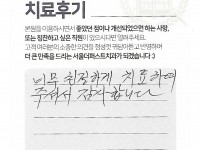 치료후기
본원을 이용하시면서 좋았던 점이나 개선되었으면 하는 사항,
또는 칭찬하고 싶은 직원이 있으시다면 알려주세요.
고객 여러분의 소중한 의견을 정성껏 귀담아 듣고 반영하며
더 큰 만족을 드리는 서울더퍼스트치과가 되겠습니다 :)
너무 친절하게 치료하여
주셔서 감사합니다